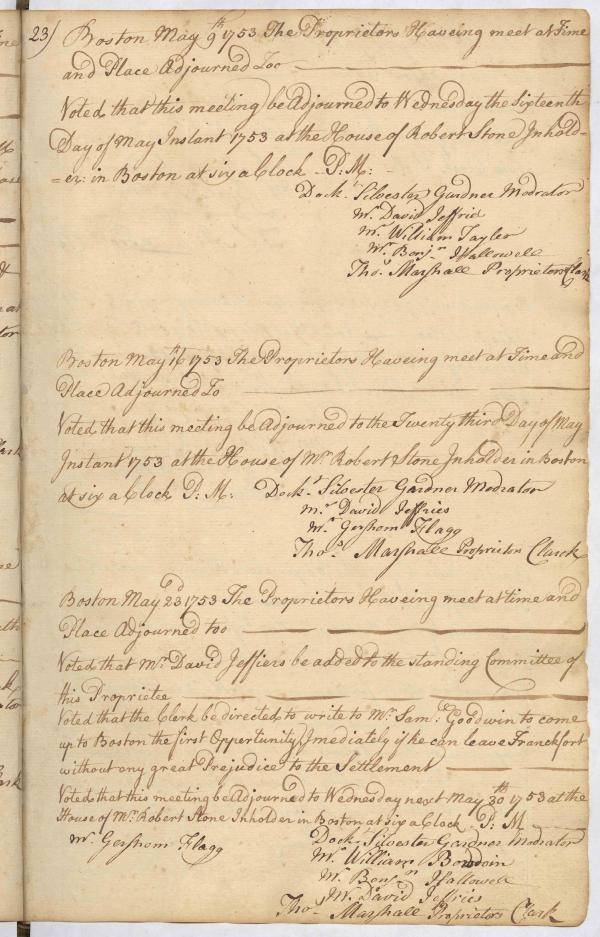 23) Boston May 9th 1753 The Proprietors Haveing meet at Time
and Place Adjourned Too
Voted that this meeting be Adjourned to Wednesday the Sixteenth
Day of May Instant 1753 at the House of Robert Stone Inhold-
=er: in Boston at six a Clock P:M:
Dock.r Silvester Gardner Modrator
Mr. David Jeffrie
Mr. William Tayler
Mr. Benj.n Hallowell
Tho.s Marshall Proprietors Clark
Boston May 16th 1753 The Proprietors Haveing meet at Time and
Place Adjourned To
Voted that this meeting be Adjourned to the Twenty third Day of May
Instant 1753 at the House of Mr. Robert Stone Inholder in Boston
at six a Clock P:M:
Dock.r Silvester Gardner Modrator
Mr. David Jeffries
Mr. Gershom Flagg
Tho.s Marshall Proprietor Clarck
Boston May 23d 1753 The Proprietors Haveing meet at time and
Place Adjourned too
Voted that Mr. David Jeffiers be added to the standing Committee of
this Proprietee
Voted that the Clerk be directed to write to Mr. Sam:le Goodwin to come
up to Boston the first Opportunity, Imediately if he can leave Franckfort
without any great Prejudice to the Settlement
Voted that this meeting be Adjourned to Wednesday next May 30th 1753 at the
House of Mr. Robert Stone Inholder in Boston at six a Clock P:M
Mr. Gershom Flagg
Dock.r Silvester Gardner Modrator
Mr. William Bowdoin
Mr. Benj.n Hallowell
Mr. David Jeffries
Tho.s Marshall Proprietors Clark